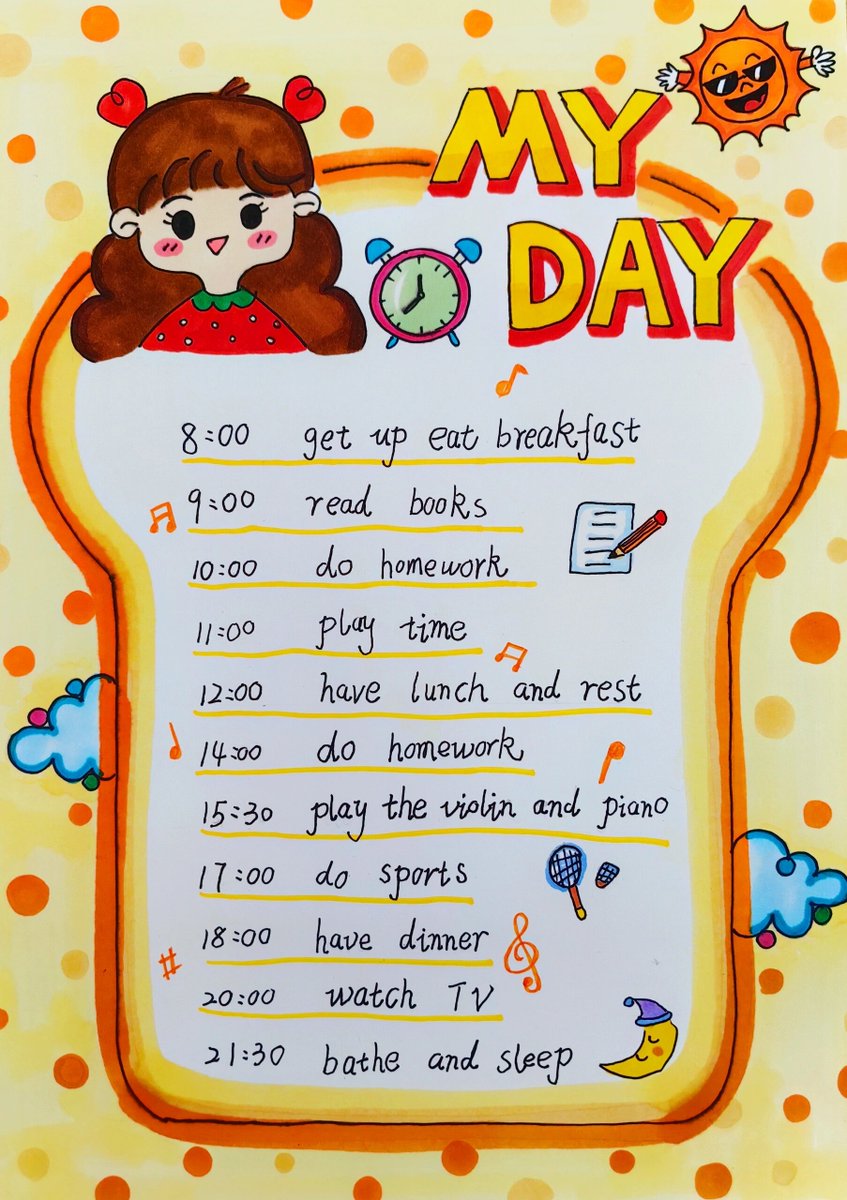 MY
DAY
8:00 get up eat breakfast
9:00 read books
10:00 do homework
11:00 play time
12:00 have lunch and rest
14:00 do homework
15:30 play the violin and piano
17:00 do sports
18:00 have dinner
20:00 watch TV
21:30 bathe and sleep